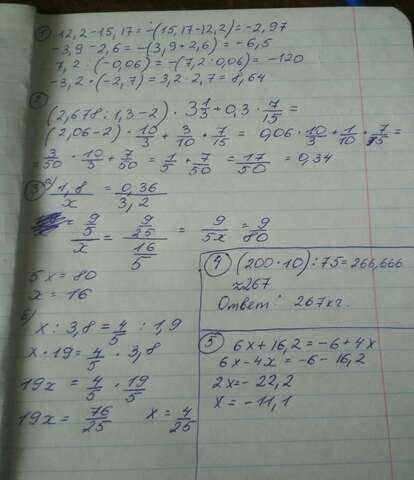 ① 12,2-15,17=-(15,17-12,2)=-2,97
-3,9-2,6=-(3,9+2,6)=-6,5
7,2:(-0,06)=-(7,2:0,06)=-120
-3,2·(-2,7)=3,2·2,7=8,64
②
(2,678:1,3-2)·3 1/3+0,3·7/15=
(2,06-2)·10/3+3/10·7/15=0,06·10/3+1/10·7/5=
=3/50·10/3+7/50=1/5+7/50=17/50=0,34
③ а) 1,8/x=0,36/3,2
=9/5/x=9/25/16/5=9/5x=9/80
5x=80
x=16
б)
x:3,8=4/5:1,9
x·19=4/5·3,8
19x=4/5·19/5
19x=76/25 x=4/25
④ (200·10):75=266,666
≈267
Ответ: 267кг.
⑤ 6x+16,2=-6+4x
6x-4x=-6-16,2
2x=-22,2
x=-11,1